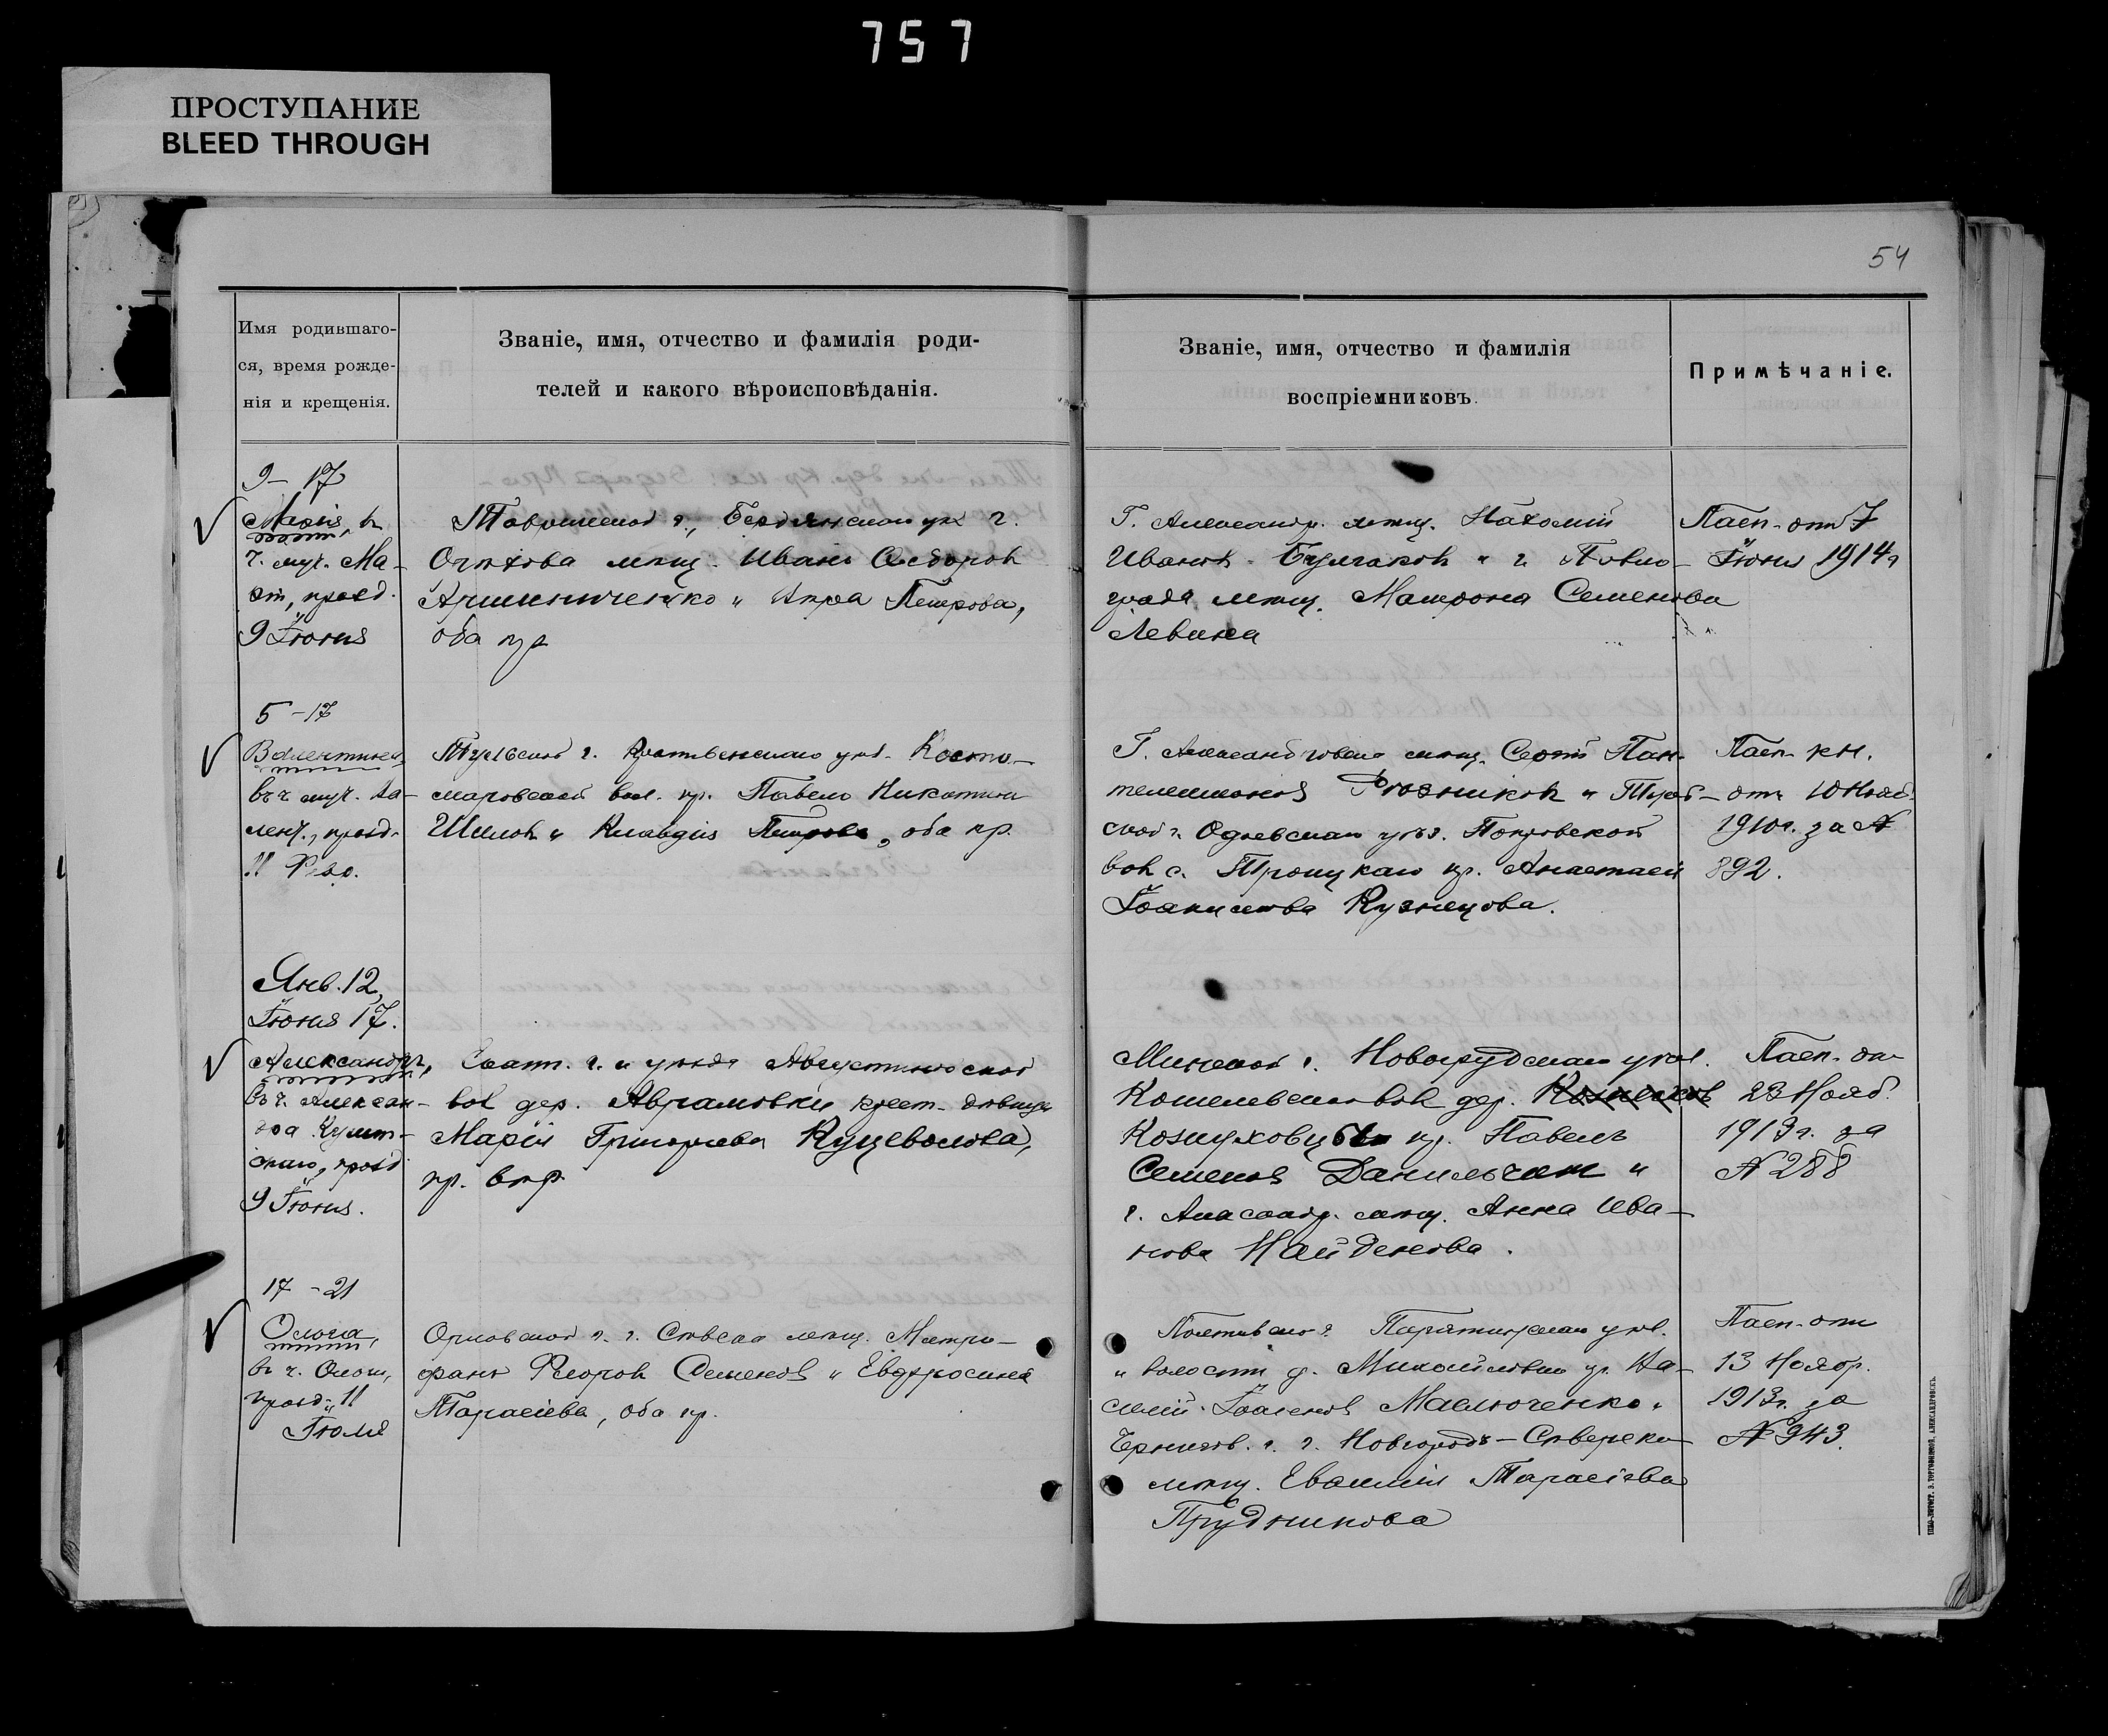 757
ПРОСТУПАНИЕ
BLEED THROUGH
54
Имя родившаго-
ся, время рожде-
нія и крещенія.
Званіе, имя, отчество и фамилія роди-
телей и какого вѣроисповѣданія.
Званіе, имя, отчество и фамилія
воспріемниковъ.
Примѣчаніе.
9 - 17
Марія, въ
ч. муч. Ма-
рт, празд.
9 Іюня
Таврической г., Бердянскаго уѣз. г.
Орѣхова мѣщ. Иванъ Ѳедоровъ
и Петрова,
оба пр.
Г. Александр. мѣщ. Наѳомій
Ивановъ Булгаковъ и г. Павло-
града мѣщ. Матрона Семенова
Левина
Пасп. отъ 7
Іюня 1914 г
5 - 17
Валентина,
въ ч. муч. Ва-
лент., празд.
11 Февр.
Тульской г. уѣз. Косто-
маровской вол. кр. Павелъ Никитинъ
Шиловъ и Клавдія Петрова, оба пр.
Г. Александровска мѣщ. Сергѣй Пан-
телеимоновъ Рязниковъ и Туль-
ской г. Одоевскаго уѣз. Покровской
вол. с. Троицкаго кр. Анастасія
Іоакимова Кузнецова.
Пасп. кн.
отъ 10 Нояб.
1910 г. за №
892.
Янв. 12,
Іюня 17.
Александръ,
въ ч. Алексан-
дра Кушт-
скаго, празд.
9 Іюня.
Екат. г. и уѣзда Августиновской
вол. дер. Аврамовки крест. дѣвица
Марія Григорьева Куцеволова,
пр. вѣр.
Минской г. Новогрудскаго уѣзд.
Кошелевской вол. дер.
Кожуховцы кр. Павелъ
Семеновъ Данильчик и
г. Александр. мѣщ. Анна Ива-
нова Найденова.
Пасп. отъ
23 Нояб.
1913 г. за
№ 288
17 - 21
Ольга,
въ ч. Ольги,
празд. 11
Іюля
Орловской г. г. Сѣвска мѣщ. Митро-
фанъ Флоровъ Семеновъ и Евфросинія
Тарасіева, оба пр.
Полтавской г. Пирятинскаго уѣзд.
и волости д. Михайловки кр. Ва-
силій Маслюченко и
Чернигов. г. г. Новгородъ-Сѣверска
мѣщ. Тарасіева
Прудникова
Пасп. отъ
13 Ноябр.
1913 г. за
№ 943.